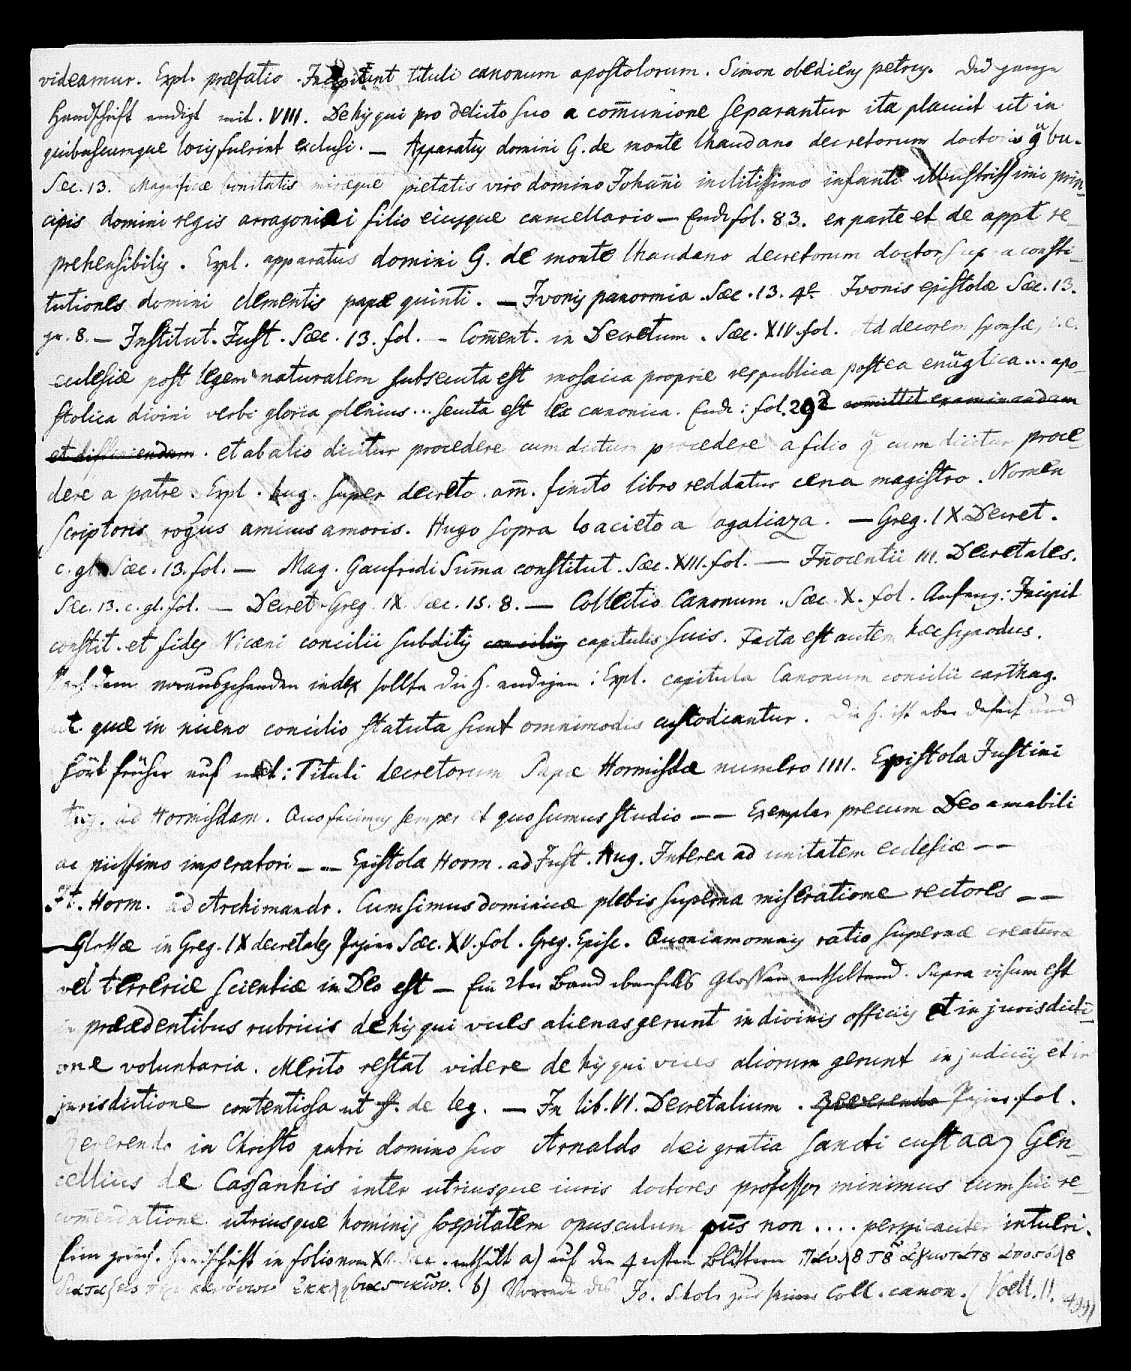 videamur. Expl. præfatio. Incipiunt tituli canonum apostolorum. Simon obediens petrus. Die ganze
Handschrift endigt mit. VIII. De his qui pro delicto suo a com̄unione separantur ita placuit ut in
quibuscumque locis fuerint exclusi. — Apparatus domini G. de monte lhaudano decretorum doctoris
Sæc. 13. Magnificæ bonitatis miræque pietatis viro domino Johan̄i inclitissimo infanti illustrissimi prin-
cipis domini regis arragoniæ i filio eiusque cancellario — Endt fol. 83. ex parte et de appt re-
prehensibilis. Expl. apparatus domini G. de monte lhaudano decretorum doctor supra consti-
tutiones domini clementis papæ quinti. — Ivonis panormia. Sæc. 13. 4º. Ivonis epistolæ Sæc. 13.
gr. 8. — Institut. Just. Sæc. 13. fol. — Com̄ent. in Decretum. Sæc. XIV. fol. Ad decorem sponsæ, i.e.
ecclesiæ post legem naturalem subsecuta est mosaica proprie respublica postea ... apo-
stolica divini verbi gloria plenius... secuta est lex canonica. Endt: fol. 292 com̄ittit examinandam
et difiniendam. et ab alio dicitur procedere cum dictum procedere a filio q̄ cum dicitur proce
dere a patre. Expl. hug. super decreto. am̄. finito libro reddatur cena magistro. Nomen
scriptoris rog̅us amicus amoris. Hugo sopra lo acieto a lagaliaza. — Greg. IX. Decret.
c. gl. Sæc. 13. fol. — Mag. Gaufredi Sum̄a constitut. Sæc. XIII. fol. — In̄ocentii III. Decretales.
Sæc. 13. c. gl. fol. — Decret. Greg. IX Sæc. 15. 8. — Collectio Canonum. Sæc. X. fol. Anfang: Incipit
constit. et fides Nicæni concilii subditis conciliis capitulis suis. Facta est autem hæc synodus.
Nach dem vorausgehenden index sollte die H. endigen: Expl. capitula Canonum concilii carthag.
ut quæ in niceno concilio statuta sunt omnimodis custodiantur. Die H. ist aber defect und
hört früher auf mit: Tituli decretorum Papæ Hormisdæ numero IIII. Epistola Justini
Aug. ad Hormisdam. Quo facimus semper et quo sumus studio — — Exemplar precum Deo amabili
ac piissimo imperatori — — Epistola Horm. ad Just. Aug. Interea ad unitatem ecclesiæ — —
It. Horm. ad Archimandr. Cum simus dominicæ plebis superna miseratione rectores — —
— Glossæ in Greg. IX decretales Papier Sæc. XV. fol. Greg. Episc. Quoniam omnis ratio supernæ creaturæ
vel terrenæ scientiæ in Deo est — Ein 2ter Band ebenfalls Glossen enthaltend. Supra visum est
in præcedentibus rubricis de his qui vices alienas gerunt in divinis officiis et in jurisdicti-
one voluntaria. Merito restat videre de his qui vices aliorum gerunt in judiciis et in
jurisdictione contentiosa ut ff. de leg. — In lib. VI. Decretalium. Reverendo Papier. fol.
Reverendo in Christo patri domino suo Arnaldo dei gratia sancti eustac̄ Gen-
cellius de Cassanhis inter utriusque iuris doctores professor minimus cum sui re-
com̄endatione utriusque hominis sospitatem opusculum pūs non .... perspicaciter intueri.
Eine griech. Handschrift in folio vom Sæc. enthält a) auf den 4 ersten Blättern
b) Vorrede des Jo. Schol. zu seiner Coll. canon. (Voell. II. 499)